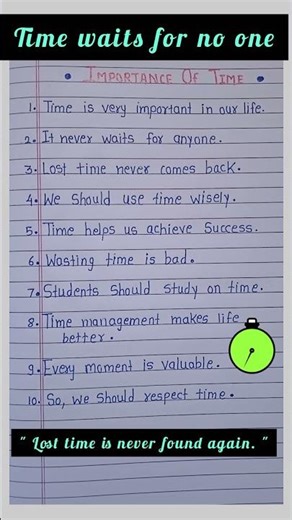 Time waits for no one
• IMPORTANCE OF TIME •
1. Time is very important in our life.
2. It never waits for anyone.
3. Lost time never comes back.
4. We should use time wisely.
5. Time helps us achieve success.
6. Wasting time is bad.
7. Students should study on time.
8. Time management makes life
better.
9. Every moment is valuable.
10. So, we should respect time.
" Lost time is never found again. "